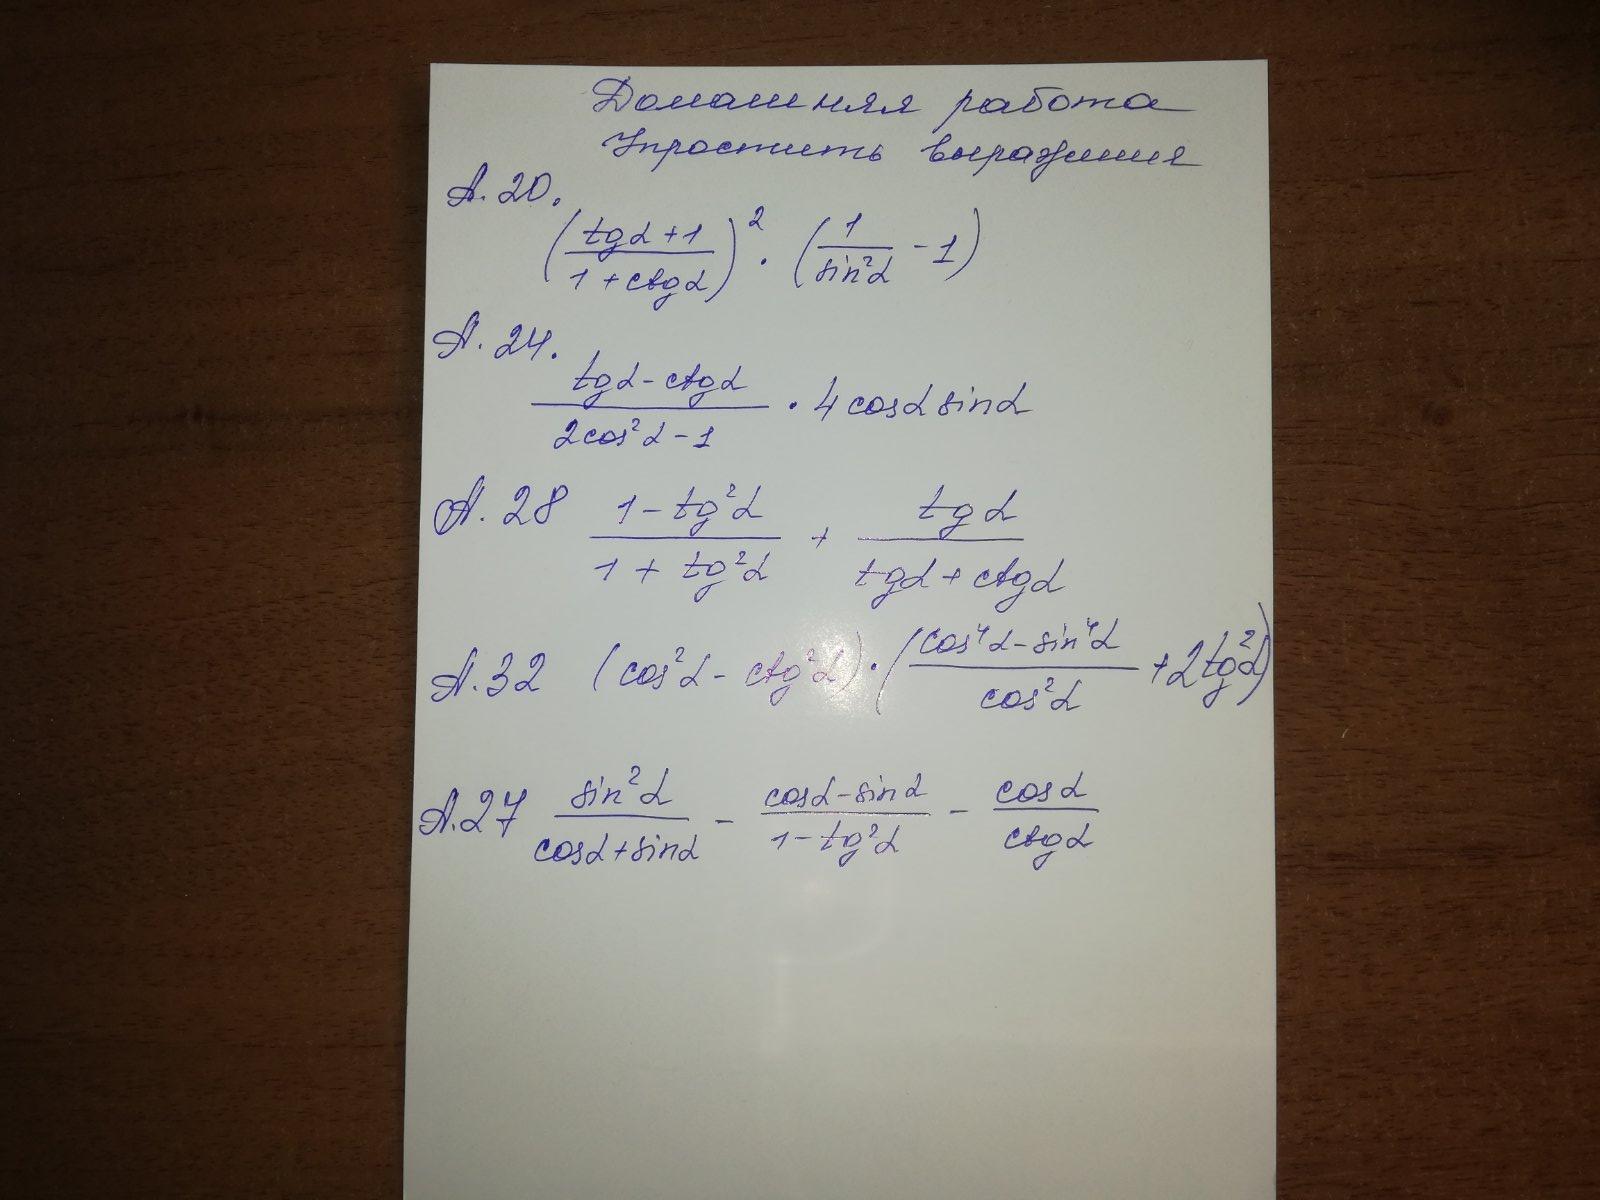 Домашняя работа
Упростить выражения
А. 20.
(tgα + 1 / 1 + ctgα)² · (1 / sin²α - 1)
А. 24.
tgα - ctgα / 2cos²α - 1 · 4 cosα sinα
А. 28 1 - tg²α / 1 + tg²α + tgα / tgα + ctgα
А. 32 (cos²α - ctg²α) · (cos⁴α - sin⁴α / cos²α + 2tg²α)
А. 27 sin²α / cosα + sinα - cosα - sinα / 1 - tg²α - cosα / ctgα